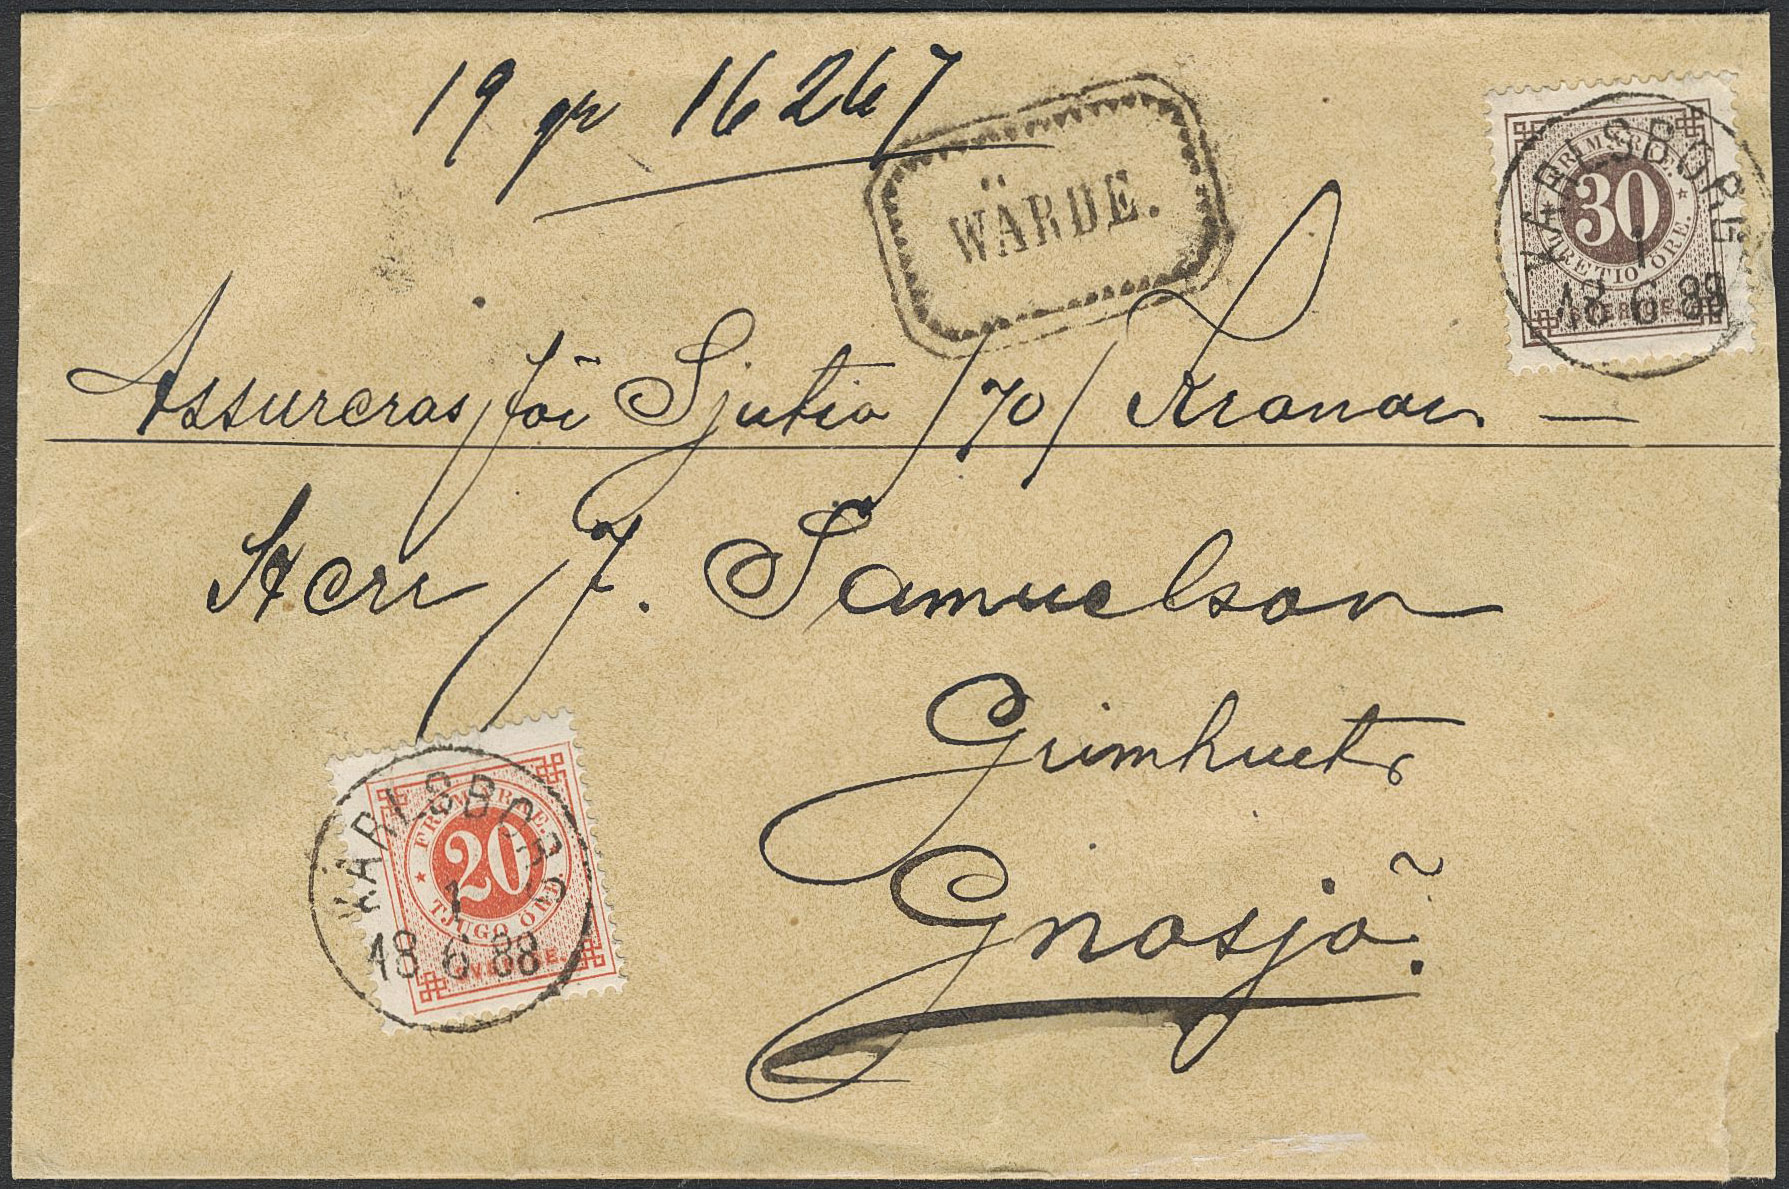 19 gr 16267
WÄRDE.
FRIMÄRKE.
30
TRETIO ÖRE.
SVERIGE.
KARLSBORG
1
18 6 88
Assureras för Sjutio /70/ Kronor —
Herr J. Samuelson
Gnosjö.
FRIMÄRKE.
20
TJUGO ÖRE
SVERIGE.
KARLSBORG
1
18 6 88